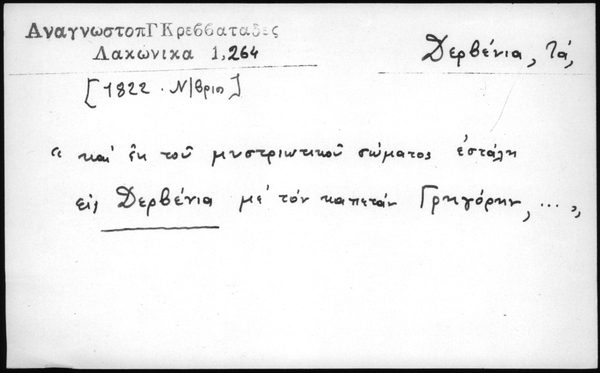 ΑναγνωστοπΓ Κρεββαταδες
Λακωνικα 1,264
Δερβένια, Τά,
[1822 · Ν/βριο]
“ καί ἐκ τοῦ μυστριωτικοῦ σώματος ἐστάλη
εἰς Δερβένια μέ τόν καπετάν Γρηγόρην, ... „